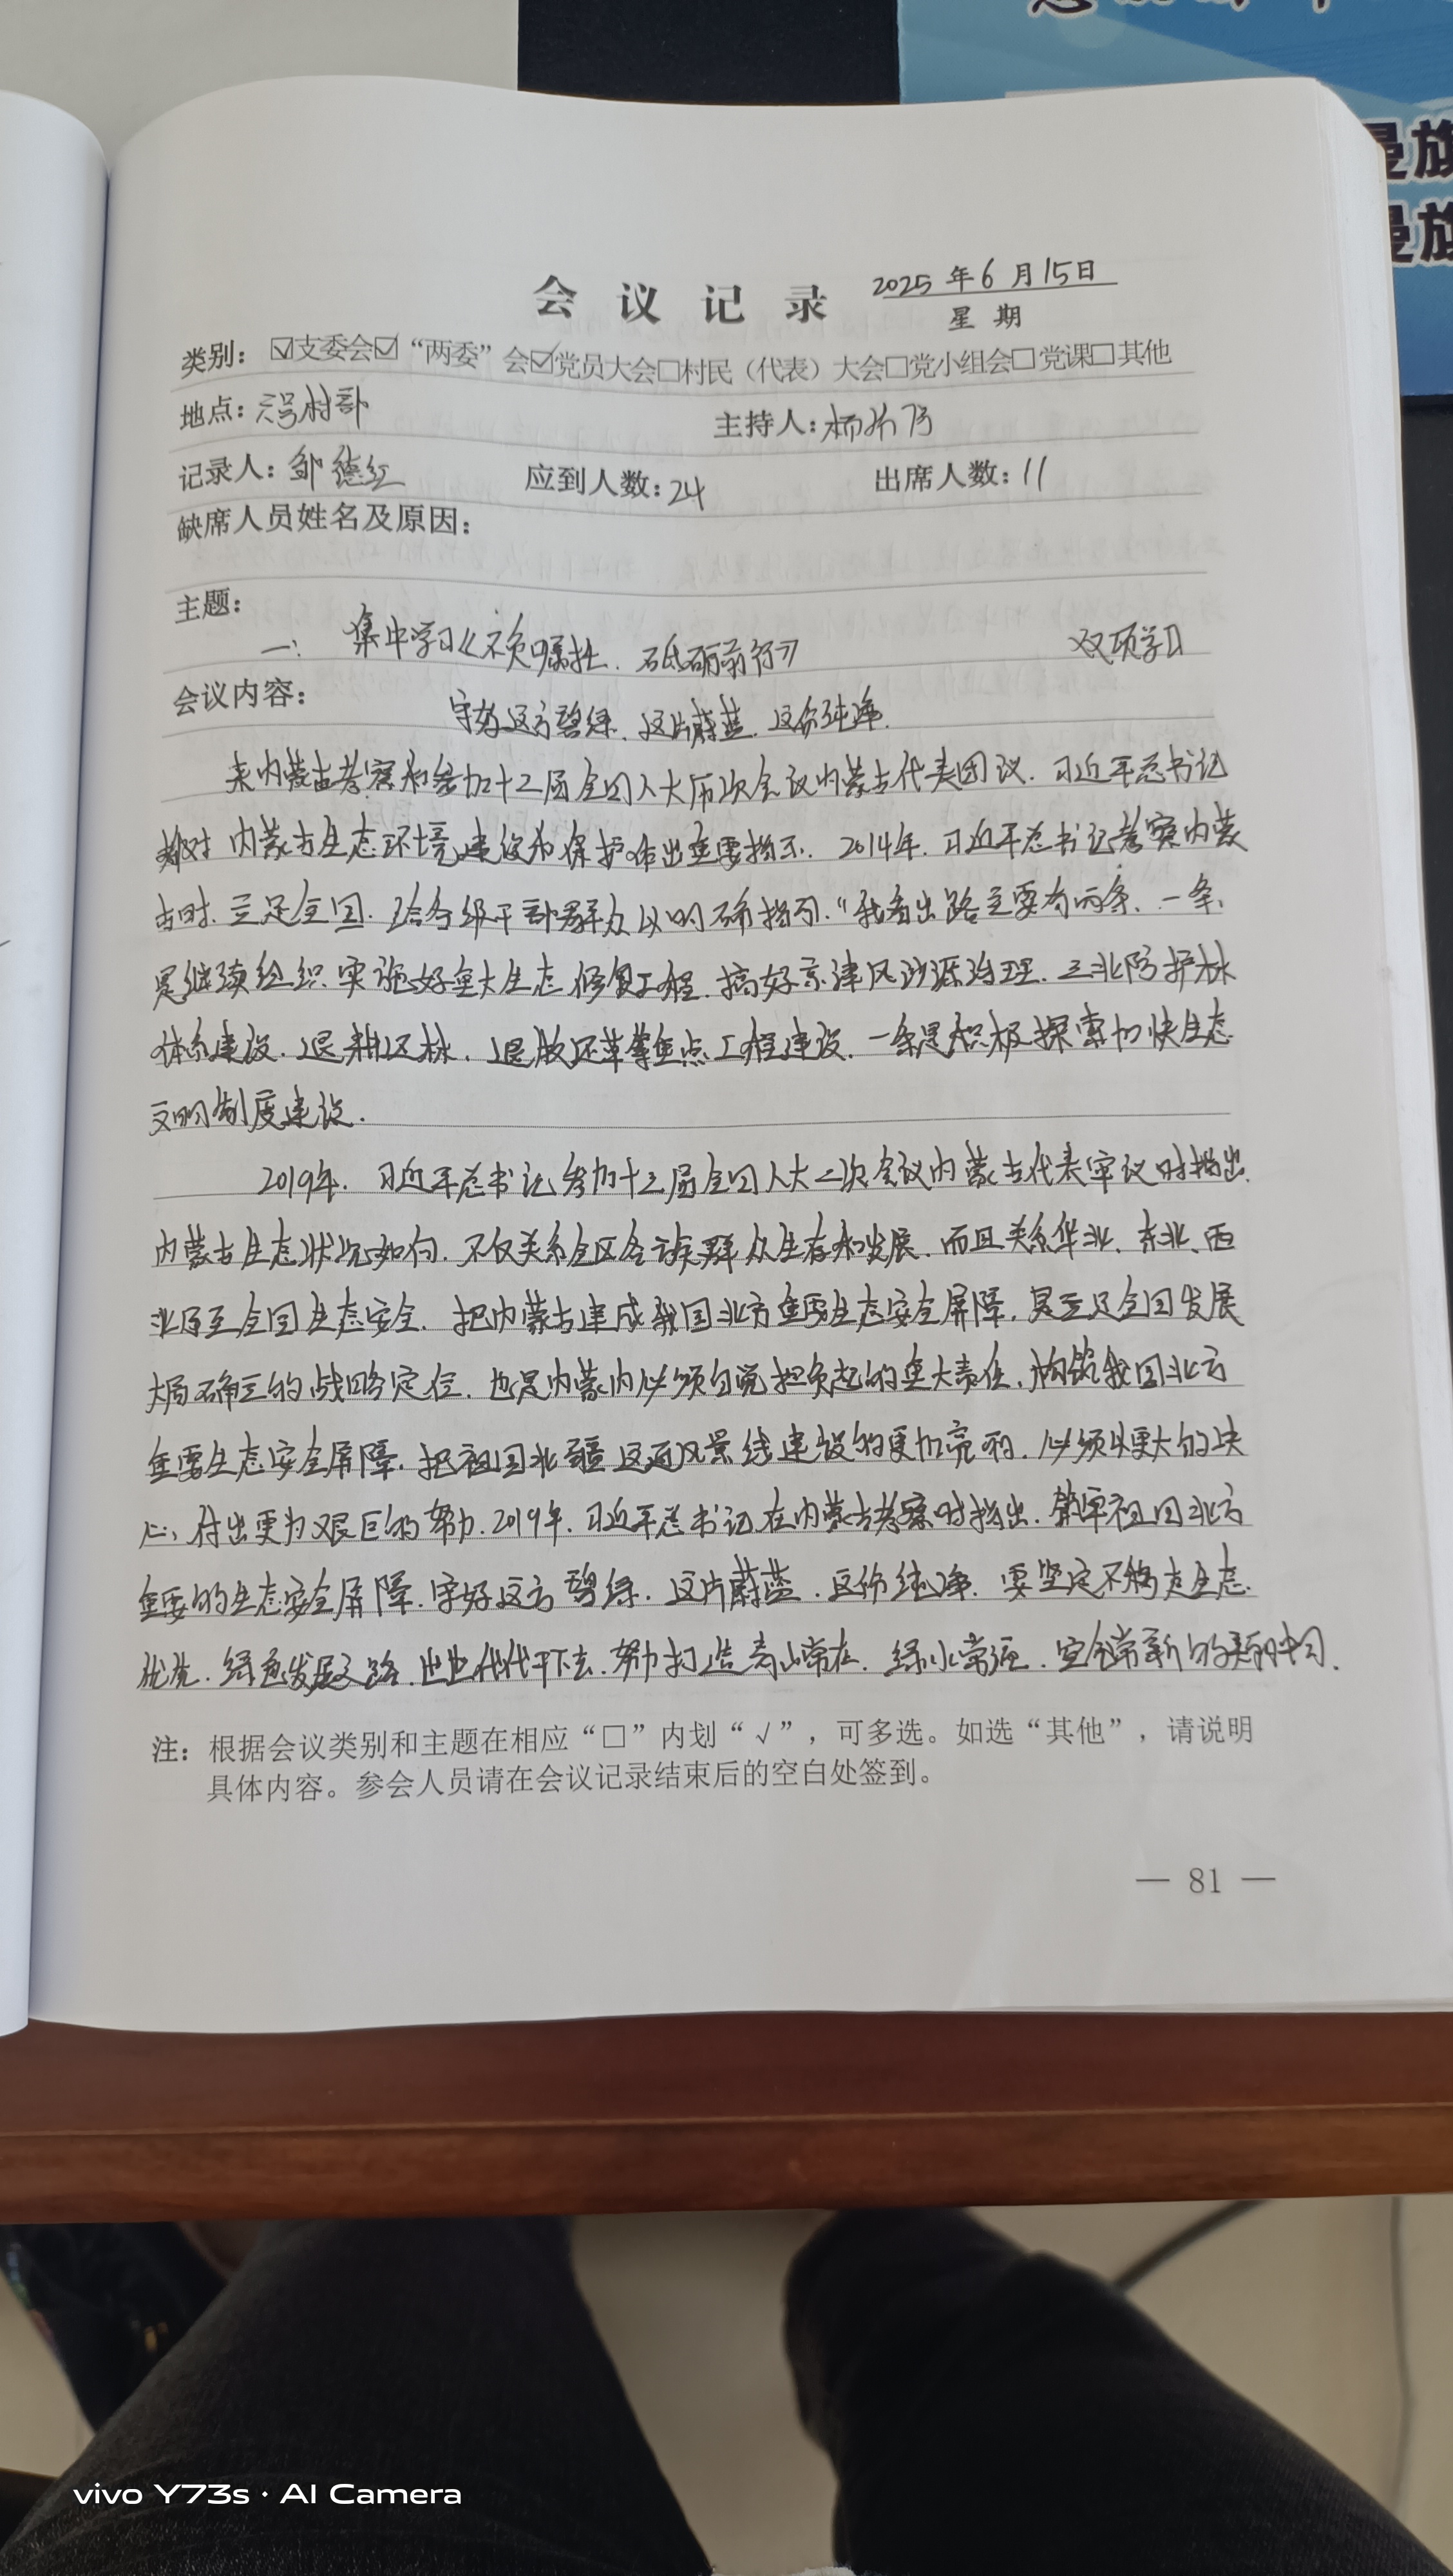 曼旗
曼旗
会议记录
2025年6月15日
星期
类别：☑支委会☑“两委”会☑党员大会□村民（代表）大会□党小组会□党课□其他
地点：村部
主持人：杨
记录人：邹德红 应到人数：24 出席人数：11
缺席人员姓名及原因：
主题：
一： 集中学习《不负嘱托、砥砺前行》 双项学习
会议内容：
守好这方碧绿、这片蔚蓝、这份纯净.
来内蒙古考察和参加十三届全国人大历次会议内蒙古代表团议、习近平总书记
都对内蒙古生态环境建设和保护作出重要指示、2014年、习近平总书记考察内蒙
古时、立足全国、给各级干部群众以明确指引、“我看出路主要有两条、一条、
是继续组织实施好重大生态修复工程、搞好京津风沙源治理、三北防护林
体系建设、退耕还林、退牧还草等重点工程建设、一条是积极探索加快生态
文明制度建设.
2019年、习近平总书记参加十三届全国人大二次会议内蒙古代表审议时指出、
内蒙古生态状况如何、不仅关系全区各族群众生存和发展、而且关系华北、东北、西
北乃至全国生态安全、把内蒙古建成我国北方重要生态安全屏障、是立足全国发展
大局确立的战略定位、也是内蒙内必须自觉担负起的重大责任、构筑我国北方
重要生态安全屏障、把祖国北疆这道风景线建设的更加亮丽、必须以更大的决
心、付出更为艰巨的努力、2019年、习近平总书记在内蒙古考察时指出、筑牢祖国北方
重要的生态安全屏障、守好这方碧绿、这片蔚蓝、这份纯净、要坚定不移走生态
优先、绿色发展之路、世世代代干下去、努力打造青山常在、绿水常在、空气常新的美丽中国、
注：根据会议类别和主题在相应“□”内划“√”，可多选。如选“其他”，请说明
具体内容。参会人员请在会议记录结束后的空白处签到。
— 81 —
vivo Y73s · AI Camera